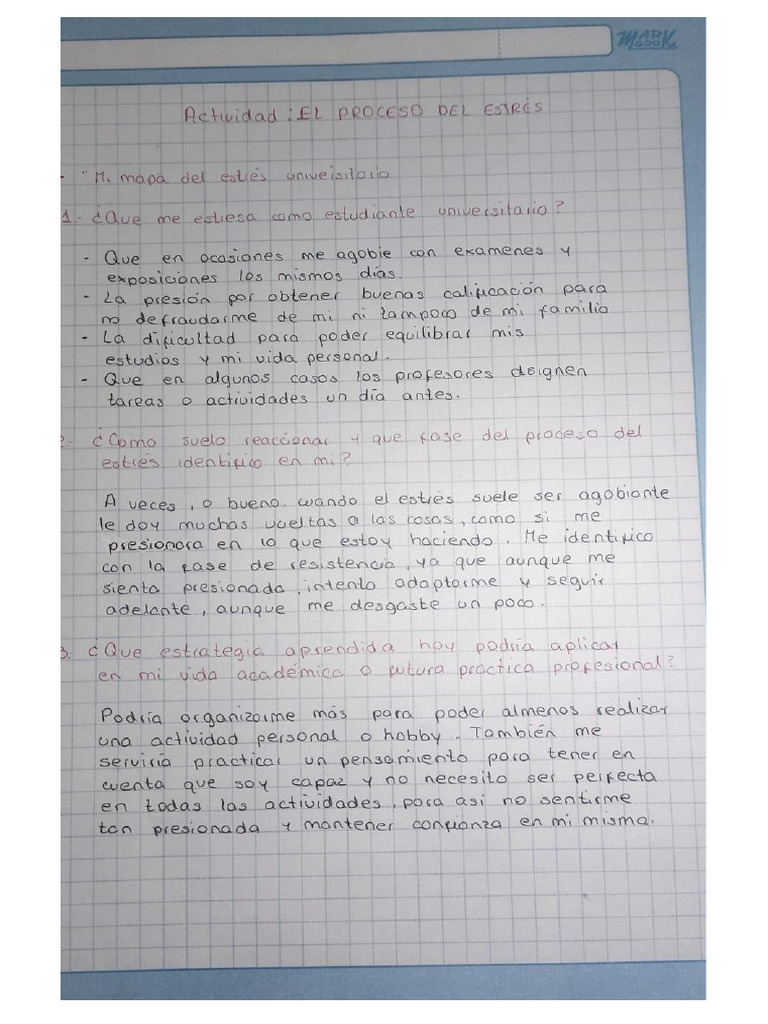 MARK BOOK
Actividad: EL PROCESO DEL ESTRÉS
- "Mi mapa del estrés universitario
1.- ¿Que me estresa como estudiante universitario?
- Que en ocasiones me agobie con examenes y
exposiciones los mismos días.
- La presión por obtener buenas calificación para
no defraudarme de mi ni tampoco de mi familia
- La dificultad para poder equilibrar mis
estudios y mi vida personal.
- Que en algunos casos los profesores designen
tareas o actividades un día antes.
2.- ¿Como suelo reaccionar y que fase del proceso del
estrés identifico en mi?
A veces, o bueno. cuando el estrés suele ser agobiante
le doy muchas vueltas a las cosas, como si me
presionara en lo que estoy haciendo. Me identifico
con la fase de resistencia, ya que aunque me
sienta presionada, intento adaptarme y seguir
adelante, aunque me desgaste un poco.
3. ¿Que estrategia aprendida hoy podría aplicar
en mi vida académica o futura práctica profesional?
Podría organizarme más para poder almenos realizar
una actividad personal o hobby. También me
serviría practicar un pensamiento para tener en
cuenta que soy capaz y no necesito ser perfecta
en todas las actividades, para asi no sentirme
tan presionada y mantener confianza en mi misma.